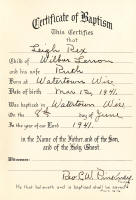 Certificate of Baptism
This Certifies
that
Leigh Rex
Child of Wilbur
and his wife Ruth
Born at Watertown Wis
Date of Birth Mar. 12, 1941.
Was baptized in Watertown Wis
On the 8th day of June
In the year of our Lord 1941.
in the Name of the Father and of the Son,
and of the Holy Ghost.
Witnesses:
Rev.
He that believeth and is baptized shall be saved.